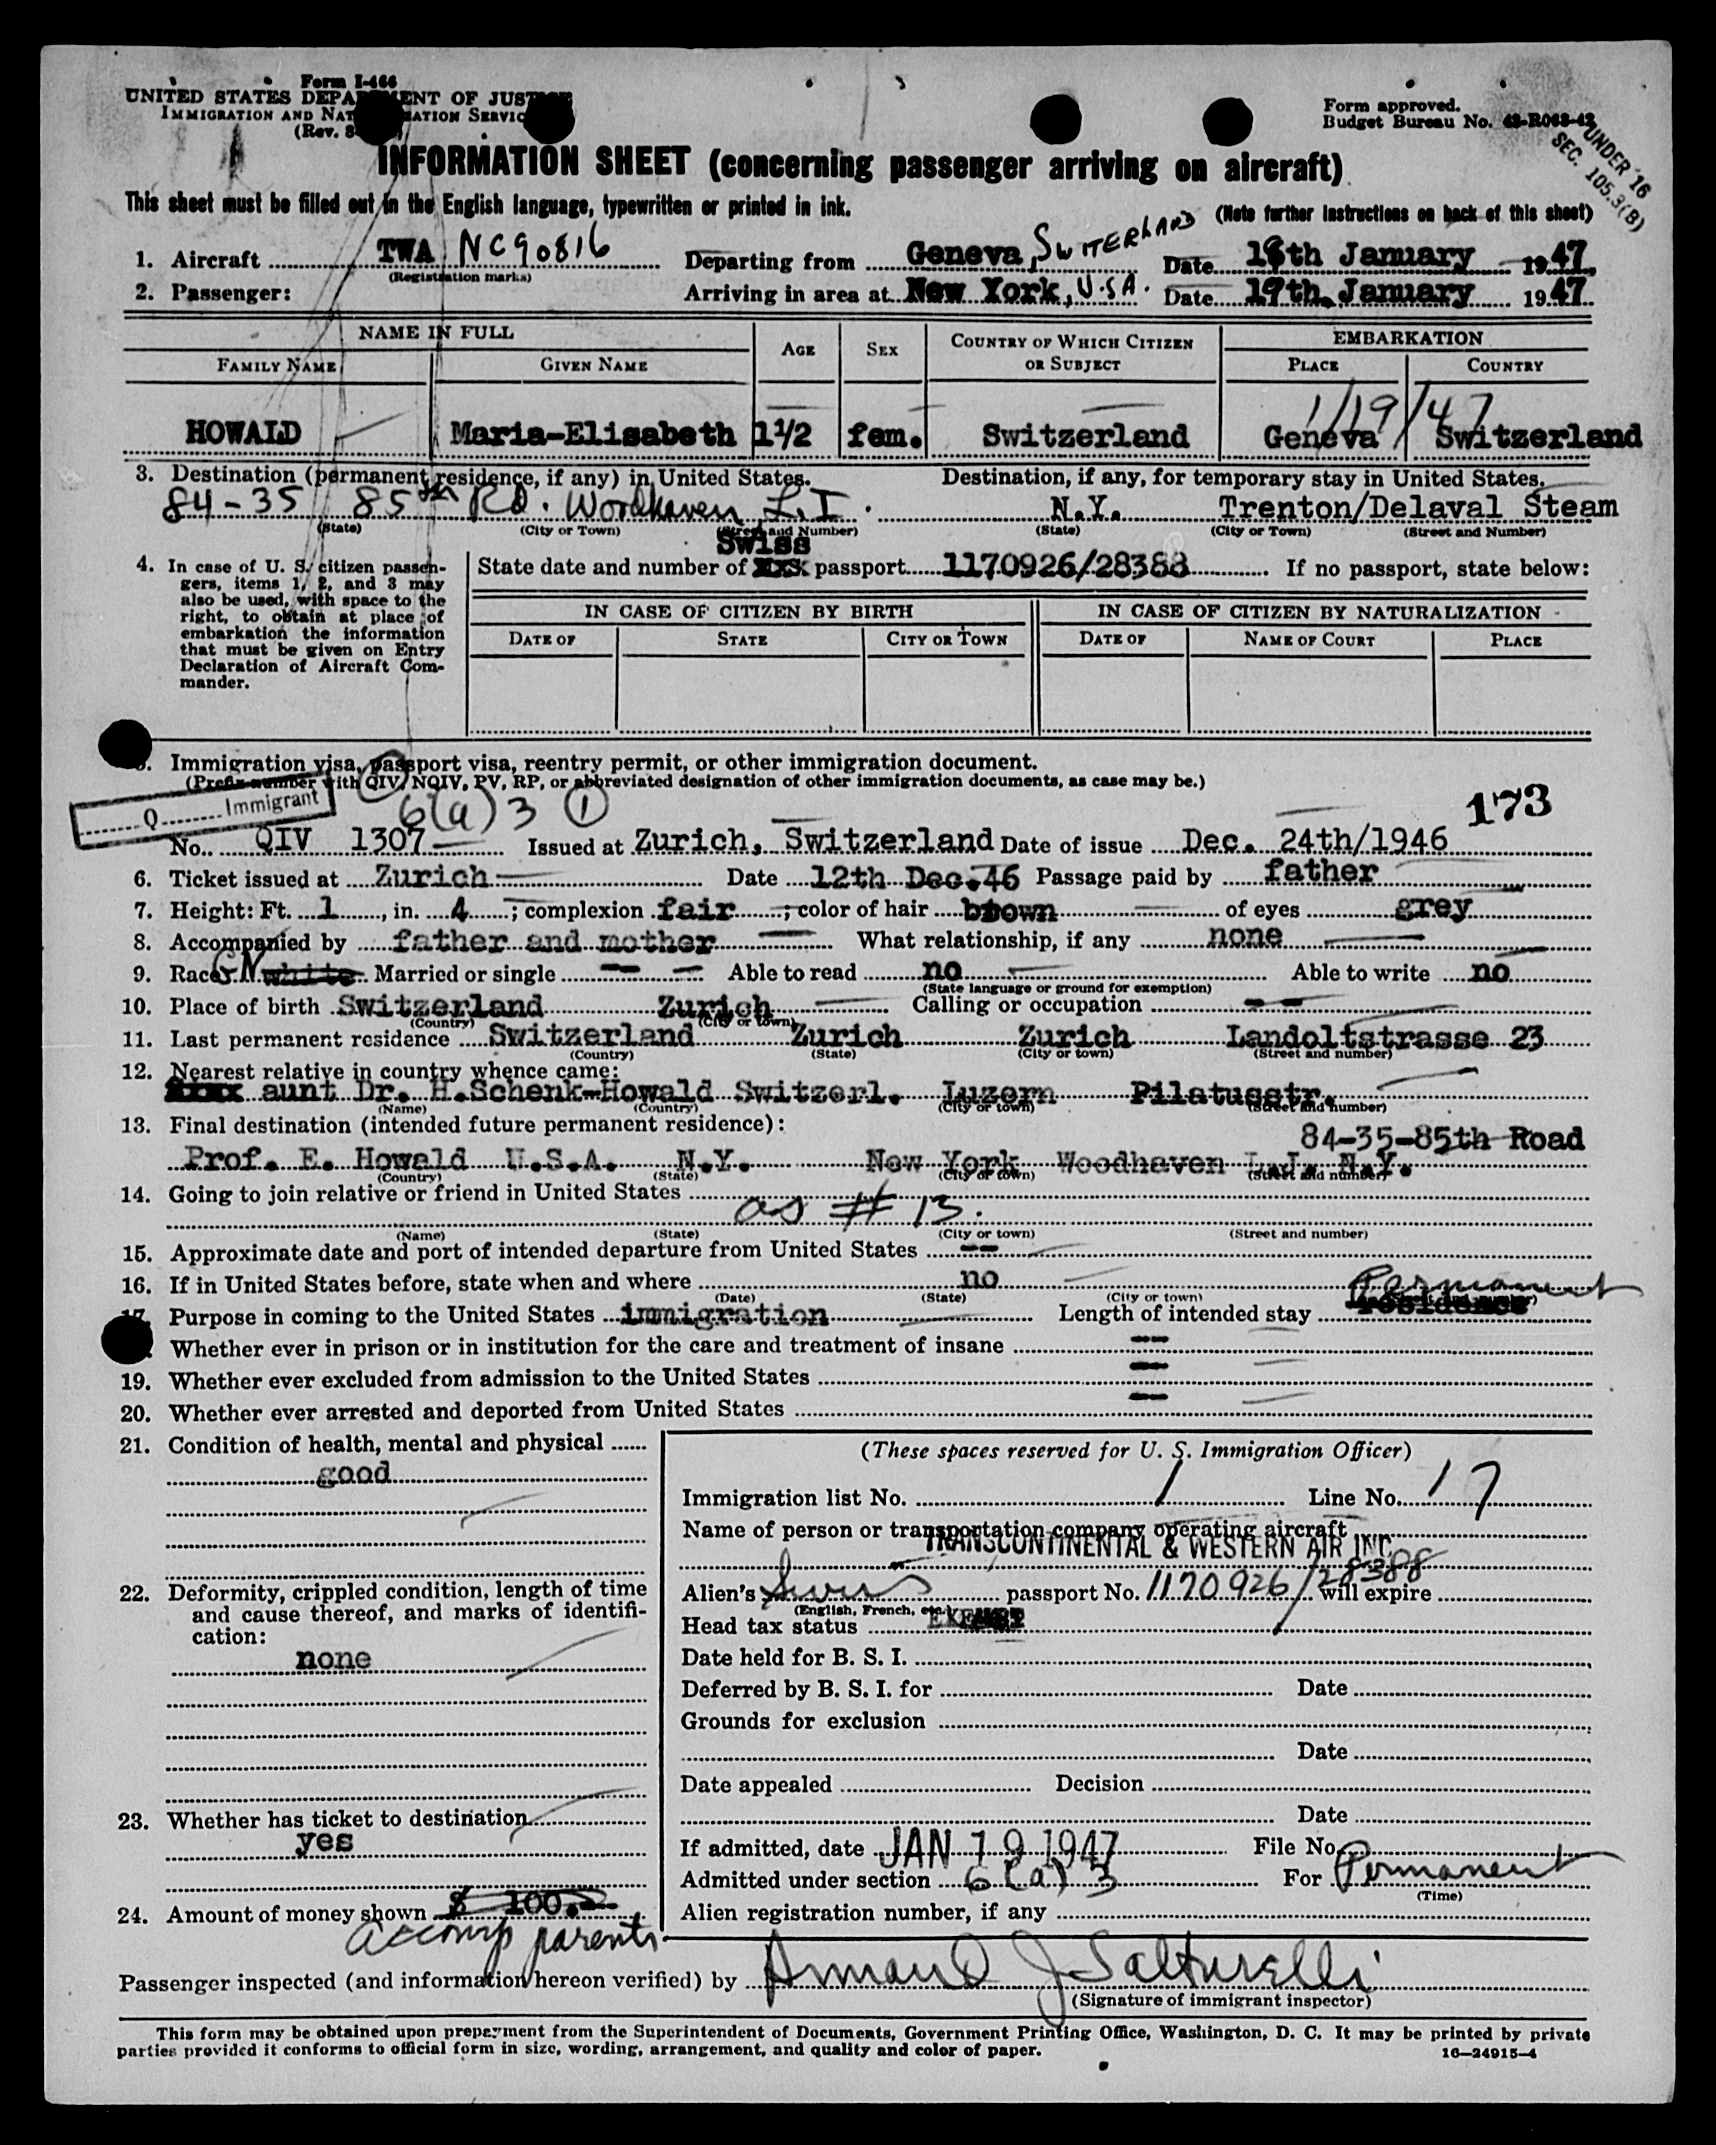 Form I-466
UNITED STATES DEPARTMENT OF JUSTICE
IMMIGRATION AND NATURALIZATION SERVICE
(Rev. 8
Form approved.
Budget Bureau No. 43-R063-42
UNDER 16
SEC. 105.3(B)
INFORMATION SHEET (concerning passenger arriving on aircraft)
This sheet must be filled out in the English language, typewritten or printed in ink.
(Note further instructions on back of this sheet)
1. Aircraft TWA NC90816 Departing from Geneva, SWITERLAND Date 18th January 1947,
(Registration marks)
2. Passenger: Arriving in area at New York, U.S.A. Date 19th January 1947
NAME IN FULL AGE SEX COUNTRY OF WHICH CITIZEN OR SUBJECT EMBARKATION
FAMILY NAME GIVEN NAME PLACE COUNTRY
1/19/47
HOWALD Maria-Elisabeth 1½ fem. Switzerland Geneva Switzerland
3. Destination (permanent residence, if any) in United States. Destination, if any, for temporary stay in United States.
84-35 85th Rd. Woodhaven L.I. N.Y. Trenton/Delaval Steam
(State) (City or Town) (Street and Number) (State) (City or Town) (Street and Number)
4. In case of U. S. citizen passengers, items 1, 2, and 3 may also be used, with space to the right, to obtain at place of embarkation the information that must be given on Entry Declaration of Aircraft Commander.
Swiss
State date and number of xxx passport 1170926/28388 If no passport, state below:
IN CASE OF CITIZEN BY BIRTH IN CASE OF CITIZEN BY NATURALIZATION
DATE OF STATE CITY OR TOWN DATE OF NAME OF COURT PLACE
5. Immigration visa, passport visa, reentry permit, or other immigration document.
(Prefix number with QIV, NQIV, PV, RP, or abbreviated designation of other immigration documents, as case may be.)
Q Immigrant
6(a)3 1
173
No. QIV 1307 Issued at Zurich, Switzerland Date of issue Dec. 24th/1946
6. Ticket issued at Zurich Date 12th Dec.46 Passage paid by father
7. Height: Ft. 1, in. 4; complexion fair; color of hair brown of eyes grey
8. Accompanied by father and mother What relationship, if any none
9. Race GN white Married or single -- Able to read no Able to write no
(State language or ground for exemption)
10. Place of birth Switzerland Zurich Calling or occupation --
(Country) (City or town)
11. Last permanent residence Switzerland Zurich Zurich Landoltstrasse 23
(Country) (State) (City or town) (Street and number)
12. Nearest relative in country whence came:
aunt Dr. H.Schenk-Howald Switzerl. Luzern Pilatusstr.
(Name) (Country) (City or town) (Street and number)
13. Final destination (intended future permanent residence):
84-35-85th Road
Prof. E. Howald U.S.A. N.Y. New York Woodhaven L.I. N.Y.
(Country) (State) (City or town) (Street and number)
14. Going to join relative or friend in United States
as # 13.
(Name) (State) (City or town) (Street and number)
15. Approximate date and port of intended departure from United States --
16. If in United States before, state when and where no
(Date) (State) (City or town)
Permanent
17. Purpose in coming to the United States immigration Length of intended stay residence
Whether ever in prison or in institution for the care and treatment of insane --
19. Whether ever excluded from admission to the United States --
20. Whether ever arrested and deported from United States --
21. Condition of health, mental and physical
good
22. Deformity, crippled condition, length of time and cause thereof, and marks of identification:
none
23. Whether has ticket to destination
yes
24. Amount of money shown $ 100.-
accomp parents
(These spaces reserved for U. S. Immigration Officer)
Immigration list No. 1 Line No. 17
Name of person or transportation company operating aircraft
TRANSCONTINENTAL & WESTERN AIR INC.
Alien's Swiss passport No. 1170926/28388 will expire
(English, French, etc.)
Head tax status EXEMPT
Date held for B. S. I.
Deferred by B. S. I. for Date
Grounds for exclusion
Date
Date appealed Decision
Date
If admitted, date JAN 19 1947 File No.
Admitted under section 6(a)3 For Permanent
(Time)
Alien registration number, if any
Passenger inspected (and information hereon verified) by Armand J. Salturelli
(Signature of immigrant inspector)
This form may be obtained upon prepayment from the Superintendent of Documents, Government Printing Office, Washington, D. C. It may be printed by private
parties provided it conforms to official form in size, wording, arrangement, and quality and color of paper.
16—24915-4